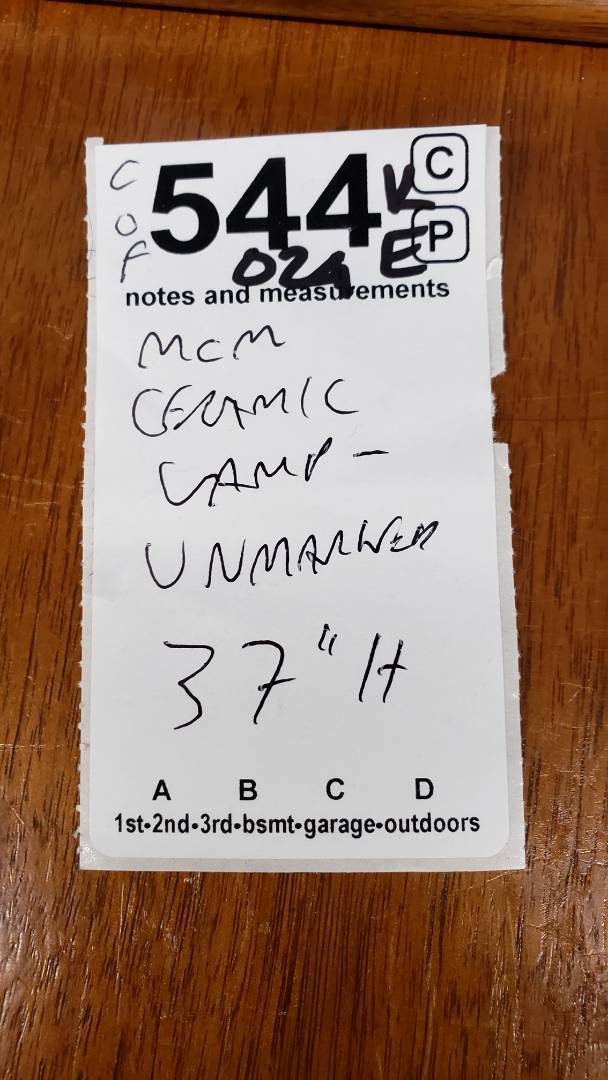 C O F
544 K C
024 E P
notes and measurements
MCM
CERAMIC
LAMP -
UNMARKED
37" H
A B C D
1st•2nd•3rd•bsmt•garage•outdoors